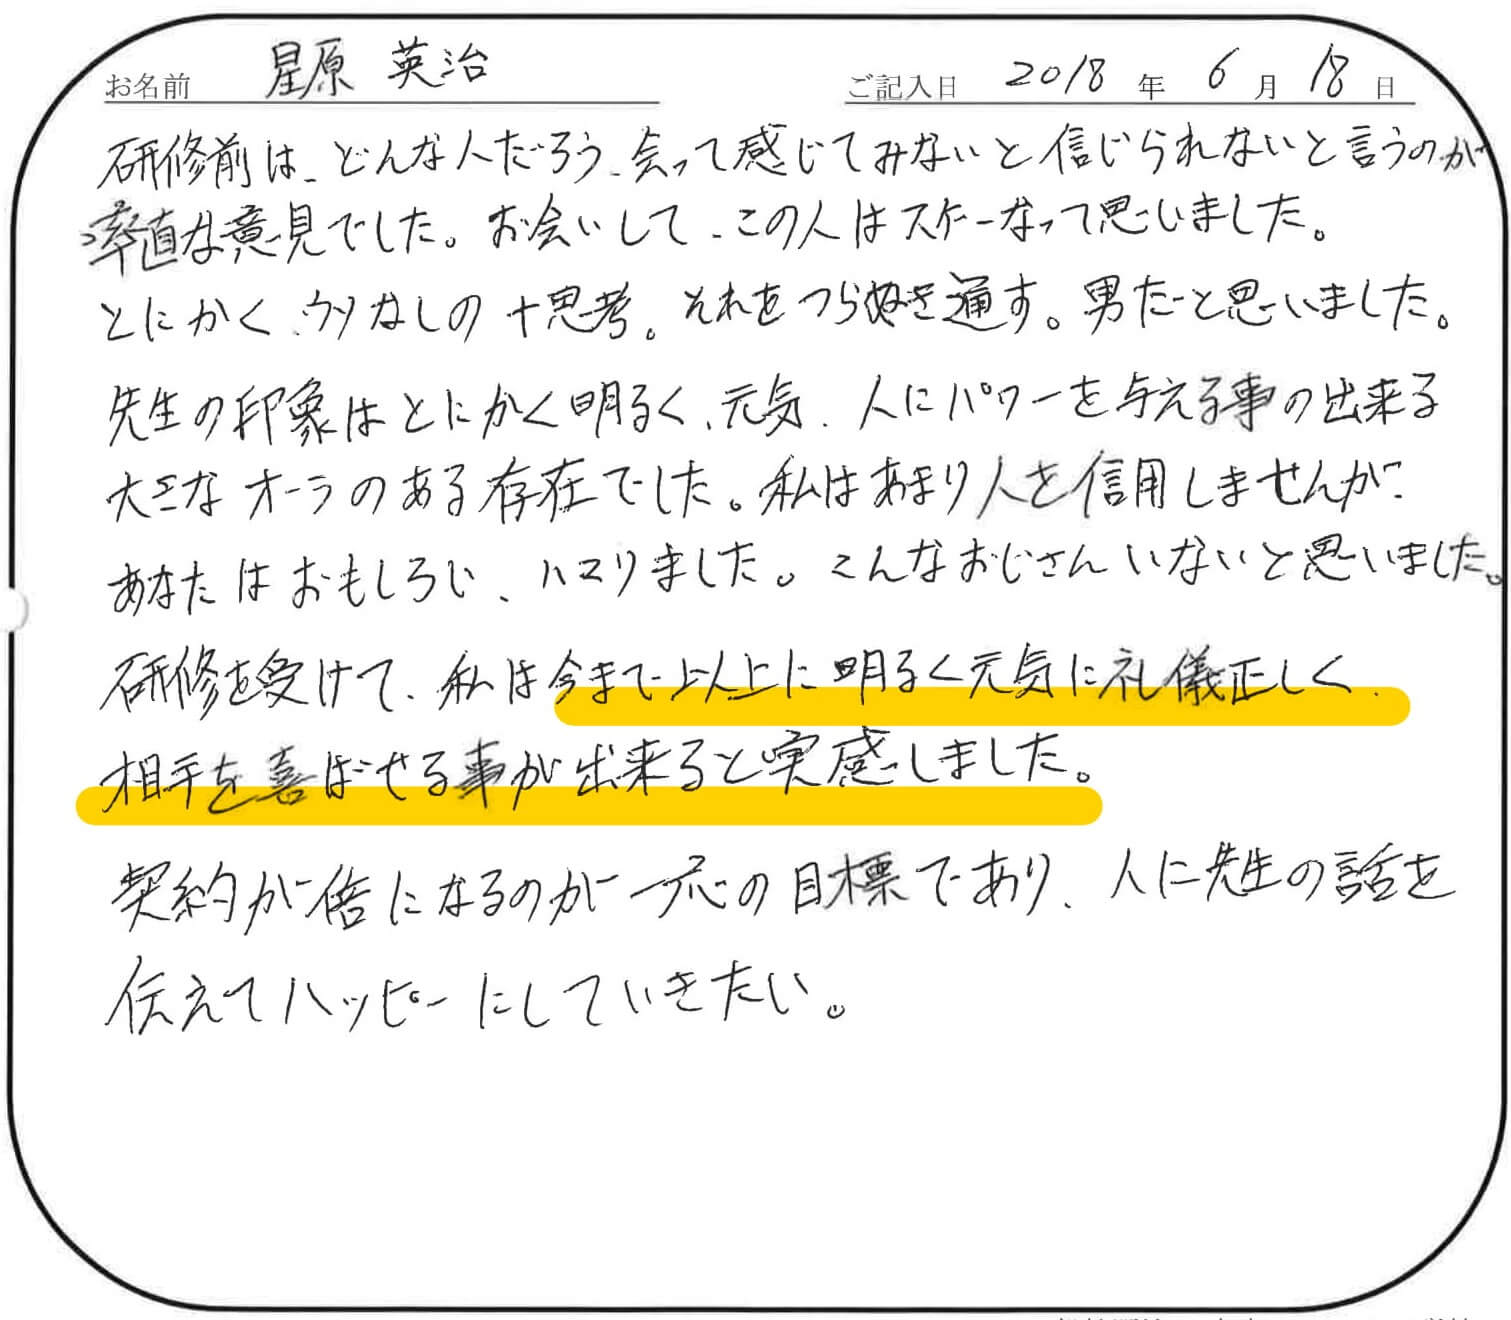 お名前 星原 英治 ご記入日 2018 年 6 月 18 日
研修前は、どんな人だろう、会って感じてみないと信じられないと言うのが
率直な意見でした。お会いして、この人はスゲーなって思いました。
とにかく、ウソなしの+思考。それをつらぬき通す。男だと思いました。
先生の印象はとにかく明るく、元気、人にパワーを与える事の出来る
大きなオーラのある存在でした。私はあまり人を信用しませんが、
あなたはおもしろい、ハマりました。こんなおじさんいないと思いました。
研修を受けて、私は今まで以上に明るく元気に礼儀正しく、
相手を喜ばせる事が出来ると実感しました。
契約が倍になるのが一応の目標であり、人に先生の話を
伝えてハッピーにしていきたい。